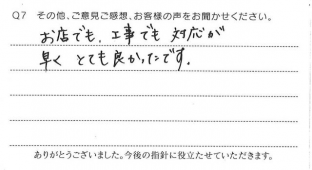 Q7 その他、ご意見ご感想、お客様の声をお聞かせください。
お店でも、工事でも 対応が
早く とても良かったです。
ありがとうございました。今後の指針に役立たせていただきます。